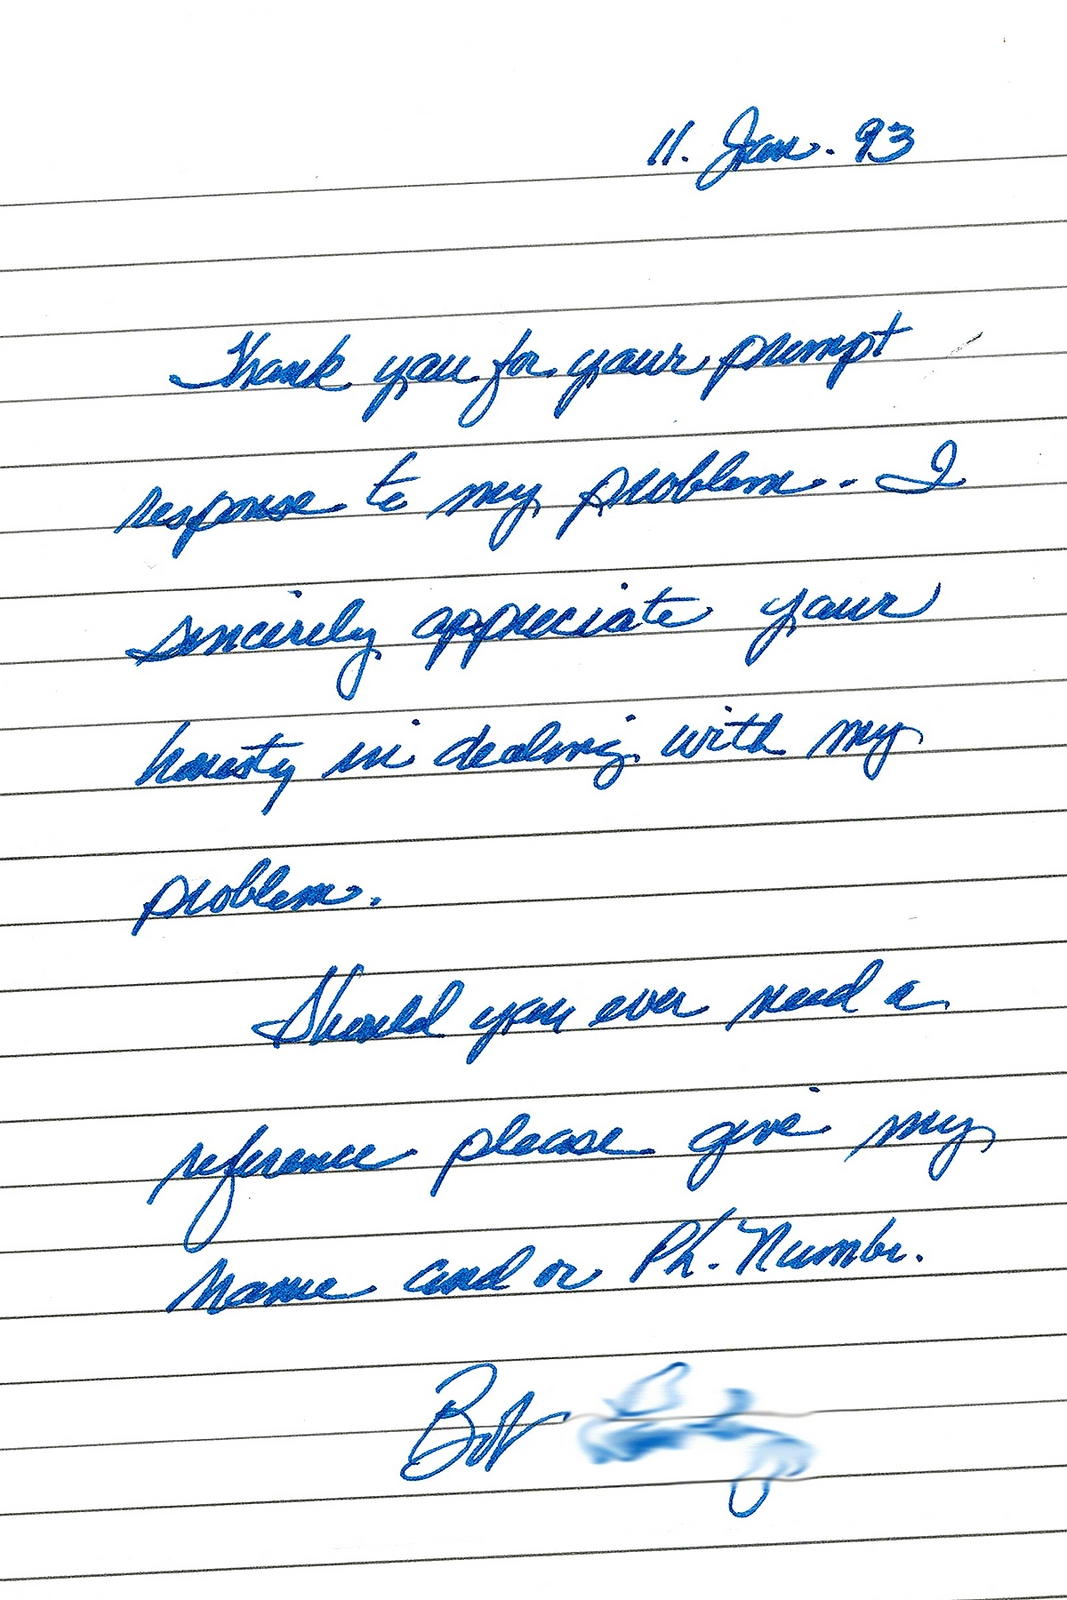 11. Jan. 93
Thank you for your prompt
response to my problem. I
sincirely appreciate your
honesty in dealing with my
problem.
Should you ever need a
reference please give my
Name and or Ph. Numbr.
Bob